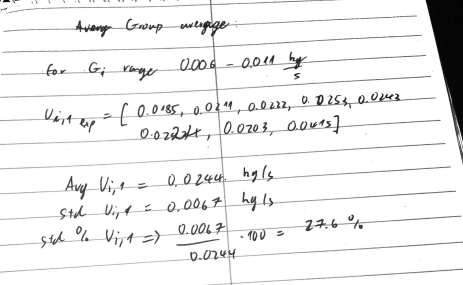 Averag Group average:
for Gi range 0.006 - 0.011 kg/s
Vi,1 exp = [ 0.0185, 0.0211, 0.0222, 0.0253, 0.0243
, 0.0203, 0.0415]
Avg Vi,1 = 0.0244 kg/s
std Vi,1 = 0.0067 kg/s
std % Vi,1 => 0.0067 / 0.0244 · 100 = 27.6 %